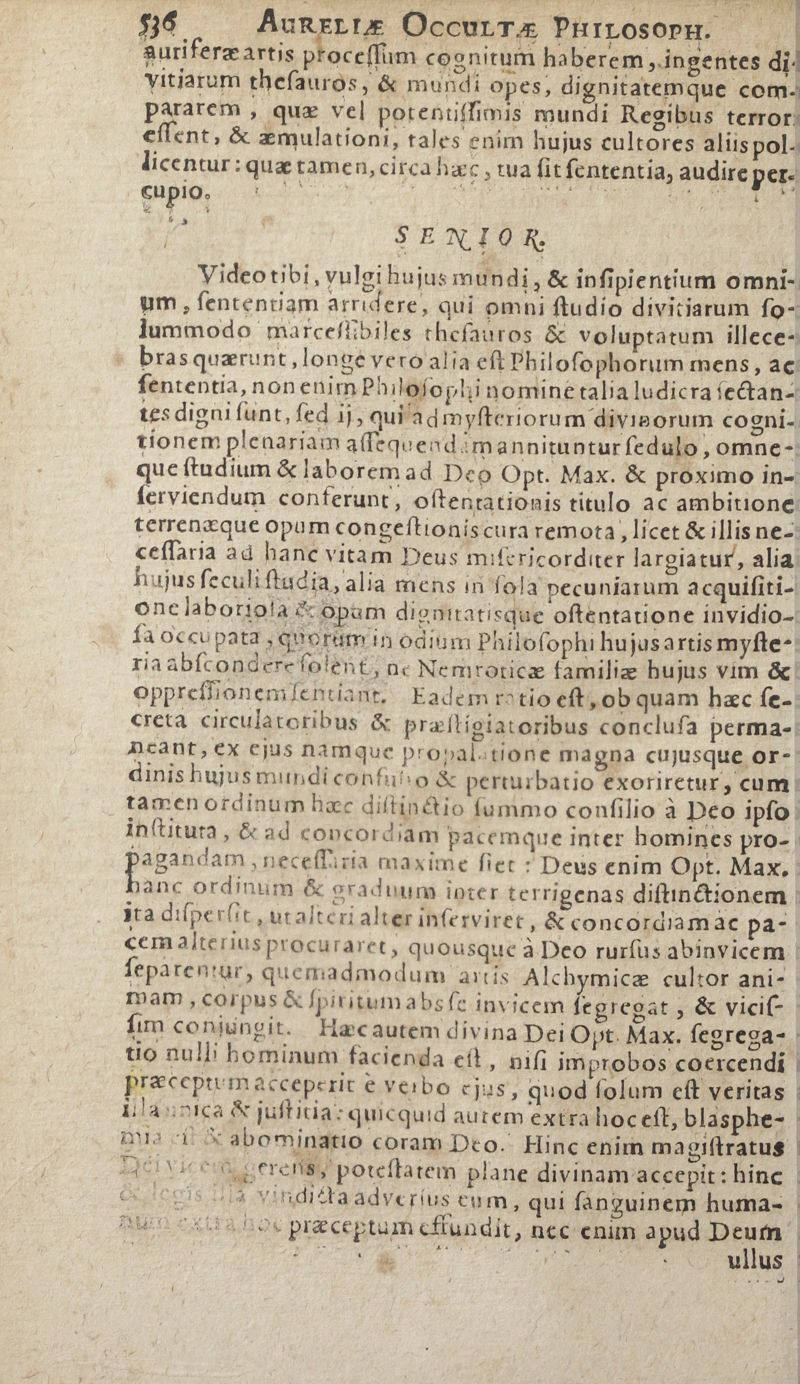 536 AURELIÆ OCCULTÆ PHILOSOPH.
auriferæ artis processum cognitum haberem, ingentes di-
vitiarum thesauros, & mundi opes, dignitatemque com-
pararem, quæ vel potentissimis mundi Regibus terror
essent, & æmulationi, tales enim hujus cultores aliis pol-
licentur: quæ tamen, circa hæc, tua sit sententia, audire per-
cupio.
SENIOR.
Video tibi, vulgi hujus mundi, & insipientium omni-
um, sententiam arridere, qui omni studio divitiarum so-
lummodo marcessibiles thesauros & voluptatum illece-
bras quærunt, longe vero alia est Philosophorum mens, ac
sententia, non enim Philosophi nomine talia ludicra sectan-
tes digni sunt, sed ij, qui ad mysteriorum divinorum cogni-
tionem plenariam assequendam annituntur sedulo, omne-
que studium & laborem ad Deo Opt. Max. & proximo in-
serviendum conferunt, ostentationis titulo ac ambitione
terrenæque opum congestionis cura remota, licet & illis ne-
cessaria ad hanc vitam Deus misericorditer largiatur, alia
hujus seculi studia, alia mens in sola pecuniarum acquisiti-
one laboriosa & opum dignitatisque ostentatione invidio-
sa occupata, quorum in odium Philosophi hujus artis myste-
ria abscondere solent, ne Nemroticæ familiæ hujus vim &
oppressionem sentiant. Eadem ratio est, ob quam hæc se-
creta circulatoribus & præstigiatoribus conclusa perma-
neant, ex ejus namque propalatione magna cujusque or-
dinis hujus mundi confusio & perturbatio exoriretur, cum
tamen ordinum hæc distinctio summo consilio à Deo ipso
instituta, & ad concordiam pacemque inter homines pro-
pagandam, necessaria maxime siet: Deus enim Opt. Max.
hanc ordinum & graduum inter terrigenas distinctionem
ita dispersit, ut alteri alter inserviret, & concordiam ac pa-
cem alterius procuraret, quousque à Deo rursus ab invicem
separentur, quemadmodum artis Alchymicæ cultor ani-
mam, corpus & spiritum abs se invicem segregat, & vicis-
sim conjungit. Hæc autem divina Dei Opt. Max. segrega-
tio nulli hominum facienda est, nisi improbos coercendi
præceptum acceperit è verbo ejus, quod solum est veritas
illa unica & justitia: quicquid autem extra hoc est, blasphe-
mia & abominatio coram Deo. Hinc enim magistratus
Dei vicem gerens, potestatem plane divinam accepit: hinc
& legis vindicta adversus eum, qui sanguinem huma-
num extra hoc præceptum effundit, nec enim apud Deum
ullus